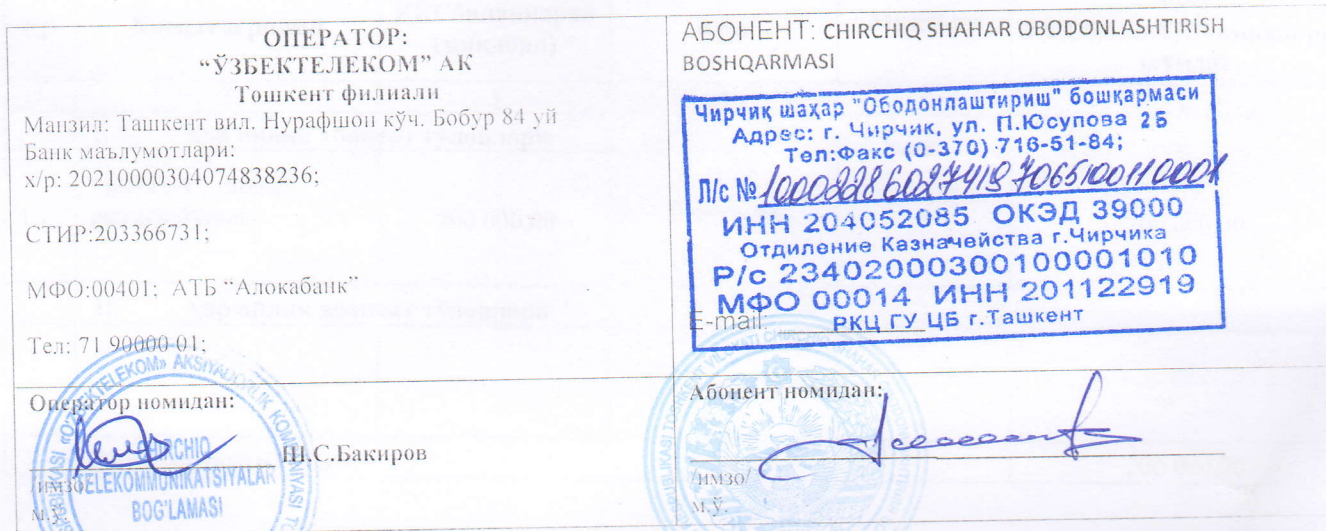 ОПЕРАТОР:
“ЎЗБЕКТЕЛЕКОМ” АК
Тошкент филиали
Манзил: Ташкент вил. Нурафшон кўч. Бобур 84 уй
Банк маълумотлари:
х/р: 20210000304074838236;
СТИР:203366731;
МФО:00401; АТБ “Алокабанк”
Тел: 71 90000 01;
Оператор номидан:
Ш.С.Бакиров
/имзо/
М.Ў.
CHIRCHIQ
TELEKOMMUNIKATSIYALAR
BOG'LAMASI
АБОНЕНТ: CHIRCHIQ SHAHAR OBODONLASHTIRISH
BOSHQARMASI
Чирчиқ шаҳар "Ободонлаштириш" бошқармаси
Адрес: г. Чирчик, ул. П.Юсупова 25
Тел:Факс (0-370) 716-51-84;
Л/с № 100022860274197065100110001
ИНН 204052085 ОКЭД 39000
Отдиление Казначейства г.Чирчика
Р/с 23402000300100001010
МФО 00014 ИНН 201122919
РКЦ ГУ ЦБ г.Ташкент
E-mail:
Абонент номидан:
/имзо/
М.Ў.